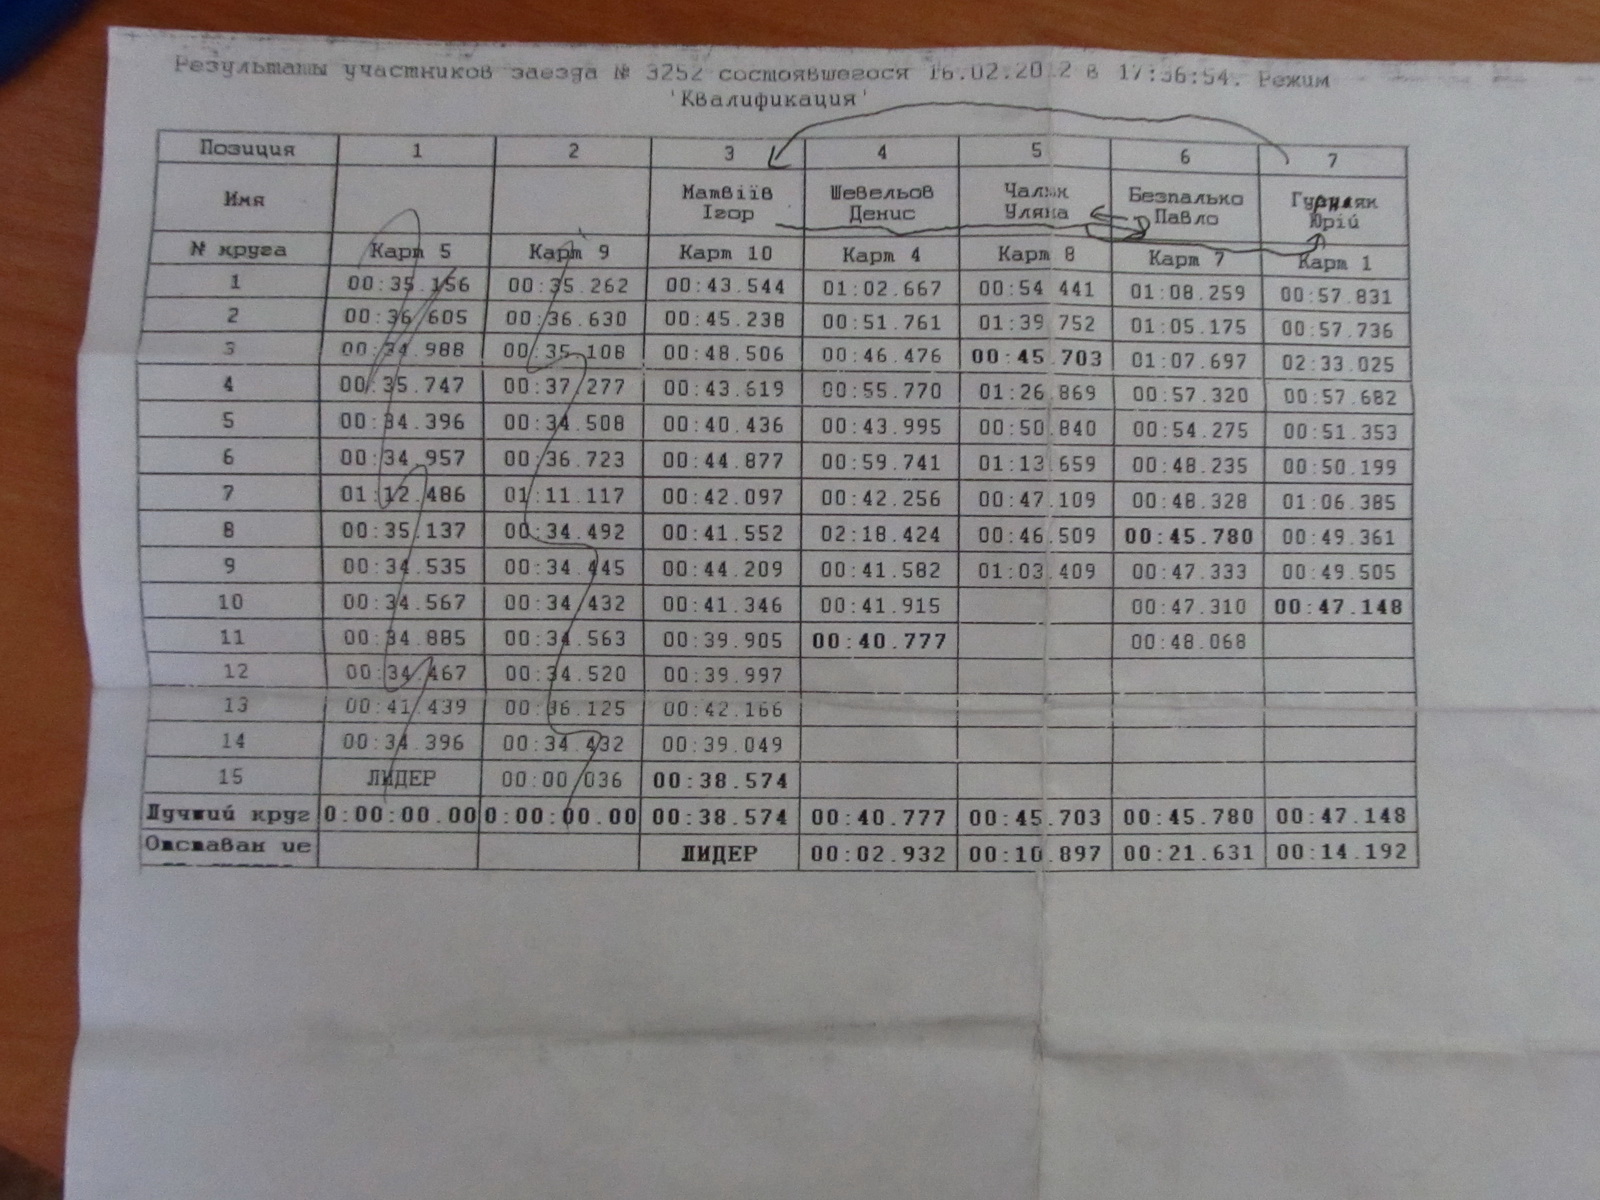 Результаты участников заезда № 3252 состоявшегося 16.02.2012 в 17:36:54. Режим
'Квалификация'
Позиция 1 2 3 4 5 6 7
Имя Матвіїв Ігор Шевельов Денис Уляна Безпалько Павло Юрій
№ круга Карт 5 Карт 9 Карт 10 Карт 4 Карт 8 Карт 7 Карт 1
1 00:35.156 00:35.262 00:43.544 01:02.667 00:54.441 01:08.259 00:57.831
2 00:36.605 00:36.630 00:45.238 00:51.761 01:39.752 01:05.175 00:57.736
3 00:34.988 00:35.108 00:48.506 00:46.476 00:45.703 01:07.697 02:33.025
4 00:35.747 00:37.277 00:43.619 00:55.770 01:26.869 00:57.320 00:57.682
5 00:34.396 00:34.508 00:40.436 00:43.995 00:50.840 00:54.275 00:51.353
6 00:34.957 00:36.723 00:44.877 00:59.741 01:13.659 00:48.235 00:50.199
7 01:12.486 01:11.117 00:42.097 00:42.256 00:47.109 00:48.328 01:06.385
8 00:35.137 00:34.492 00:41.552 02:18.424 00:46.509 00:45.780 00:49.361
9 00:34.535 00:34.445 00:44.209 00:41.582 01:03.409 00:47.333 00:49.505
10 00:34.567 00:34.432 00:41.346 00:41.915 00:47.310 00:47.148
11 00:34.885 00:34.563 00:39.905 00:40.777 00:48.068
12 00:34.467 00:34.520 00:39.997
13 00:41.439 00:36.125 00:42.166
14 00:34.396 00:34.432 00:39.049
15 ЛИДЕР 00:00.036 00:38.574
Лучший круг 0:00:00.00 0:00:00.00 00:38.574 00:40.777 00:45.703 00:45.780 00:47.148
Отставан ие ЛИДЕР 00:02.932 00:10.897 00:21.631 00:14.192